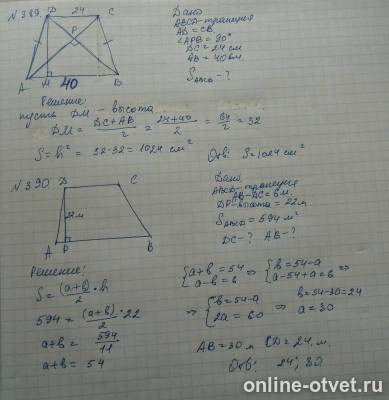 N 389.
D 24 C
P
A M 40 B
Дано
ABCD - трапеция
AD = CB
∠APB = 90°
DC = 24 см
AB = 40 см.
S ABCD - ?
Решение:
пусть DM - высота
DM = (DC+AB)/2 = (24+40)/2 = 64/2 = 32
S = h² = 32·32 = 1024 см²
Отв: S = 1024 см²
N 390.
D C
22 м
A P B
Дано
ABCD - трапеция
AB - DC = 6 м.
DP - высота = 22 м
S ABCD = 594 м²
DC - ? AB - ?
Решение:
S = (a+b)/2 · h
594 = (a+b)/2 · 22
a+b = 594/11
a+b = 54
{a+b = 54 {b = 54-a
a-b = 6 ⇒ a-54+a = 6 ⇒
⇒ {b = 54-a b = 54-30 = 24
2a = 60 ⇒ a = 30
AB = 30 м CD = 24 м.
Отв: 24; 30
online-otvet.ru